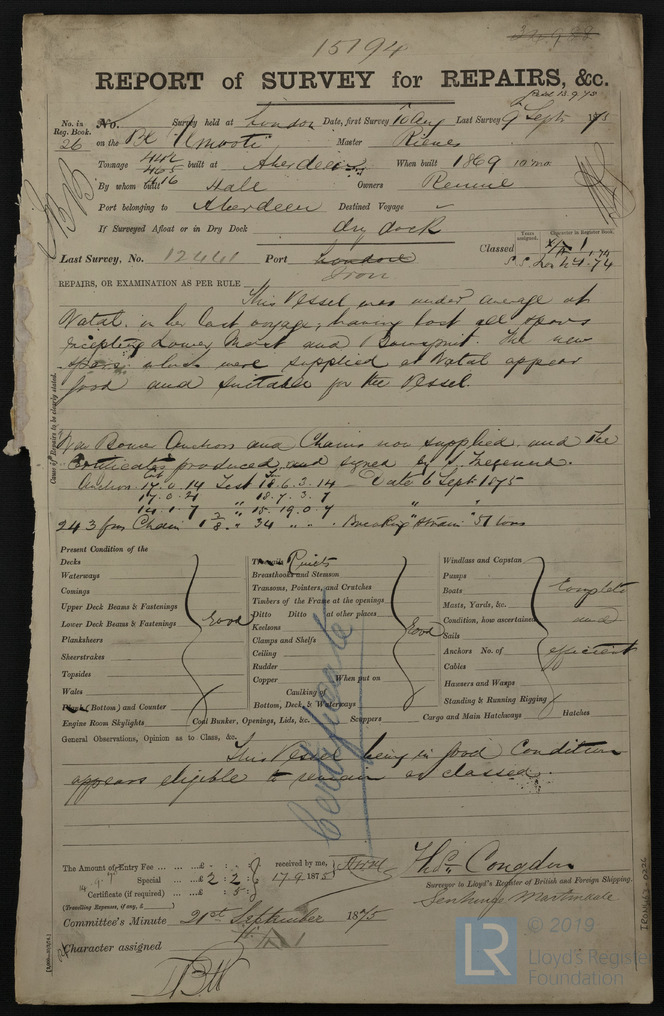 15194
REPORT of SURVEY for REPAIRS, &c.
No. in Reg. Book. No. Survey held at London Date, first Survey 10 Aug Last Survey 9 Sept 1875
26 on the Bk Umvoti Master Rieves
Tonnage 442 465 416 built at Aberdeen When built 1869 10 mo.
By whom built Hall Owners Rennie
Port belonging to Aberdeen Destined Voyage
If Surveyed Afloat or in Dry Dock dry dock
Years assigned. Character in Register Book.
Classed
Last Survey, No. 12441 Port London
Iron
REPAIRS, OR EXAMINATION AS PER RULE
Cause of Repairs to be clearly stated.
This Vessel was under average at
Natal, in her last voyage, having lost all spars
excepting Lower Mast and Bowsprit. The new
spars which were supplied at Natal appear
good and suitable for the Vessel.
New Bower Anchors and Chains now supplied, and the
Certificates produced, and signed by
Anchor 17.0.14 Test 18.6.3.14 Date 6 Sept 1875
17.0.21 " 18.7.3.7
14.1.7 " 15.19.0.7
243 fms Chain 1 3/8 " 34 " " Breaking Strain 51 tons
Present Condition of the
Decks
Waterways
Comings
Upper Deck Beams & Fastenings
Lower Deck Beams & Fastenings Good
Planksheers
Sheerstrakes
Topsides
Wales
Plank (Bottom) and Counter
Engine Room Skylights Coal Bunker, Openings, Lids, &c. Scuppers Cargo and Main Hatchways Hatches
Treenails Rivets
Breasthooks and Stemson
Transoms, Pointers, and Crutches
Timbers of the Frame at the openings
Ditto Ditto at other places
Keelsons Good
Clamps and Shelfs
Ceiling
Rudder
Copper When put on
Caulking of
Bottom, Deck, & Waterways
Windlass and Capstan
Pumps
Boats Complete
Masts, Yards, &c.
Condition, how ascertained and
Sails
Anchors No. of efficient
Cables
Hawsers and Warps
Standing & Running Rigging
Certificate
General Observations, Opinion as to Class, &c.
This Vessel being in good Condition
appears eligible to remain as classed.
The Amount of Entry Fee ... ... £ - : - : -
Special ... ... £ 2 : 2 :
Certificate (if required) ... £ - : 5 :
(Travelling Expenses, if any, £ )
received by me,
17.9.1875
Thos. Congdon
Surveyor to Lloyd's Register of British and Foreign Shipping.
Jenkings Martindale
Committee's Minute 21st September 1875
Character assigned
IRON463-0226
© 2019
LR
Lloyd's Register
Foundation